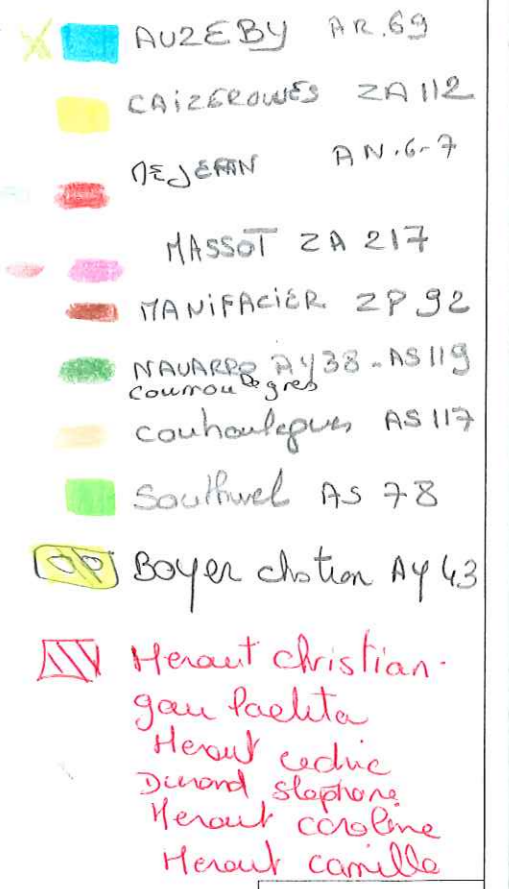 AUZEBY AR.69
CAIZERGUES ZA 112
DEJEAN AN.6-7
MASSOT ZA 217
MANIFACIER ZP 92
NAVARRO AY 38 - AS 119
AS 117
Southwel AS 78
Boyer AY 43
Heraut christian.
gau
Heraut cedric
Durand stephane
Heraut caroline
Heraut camille